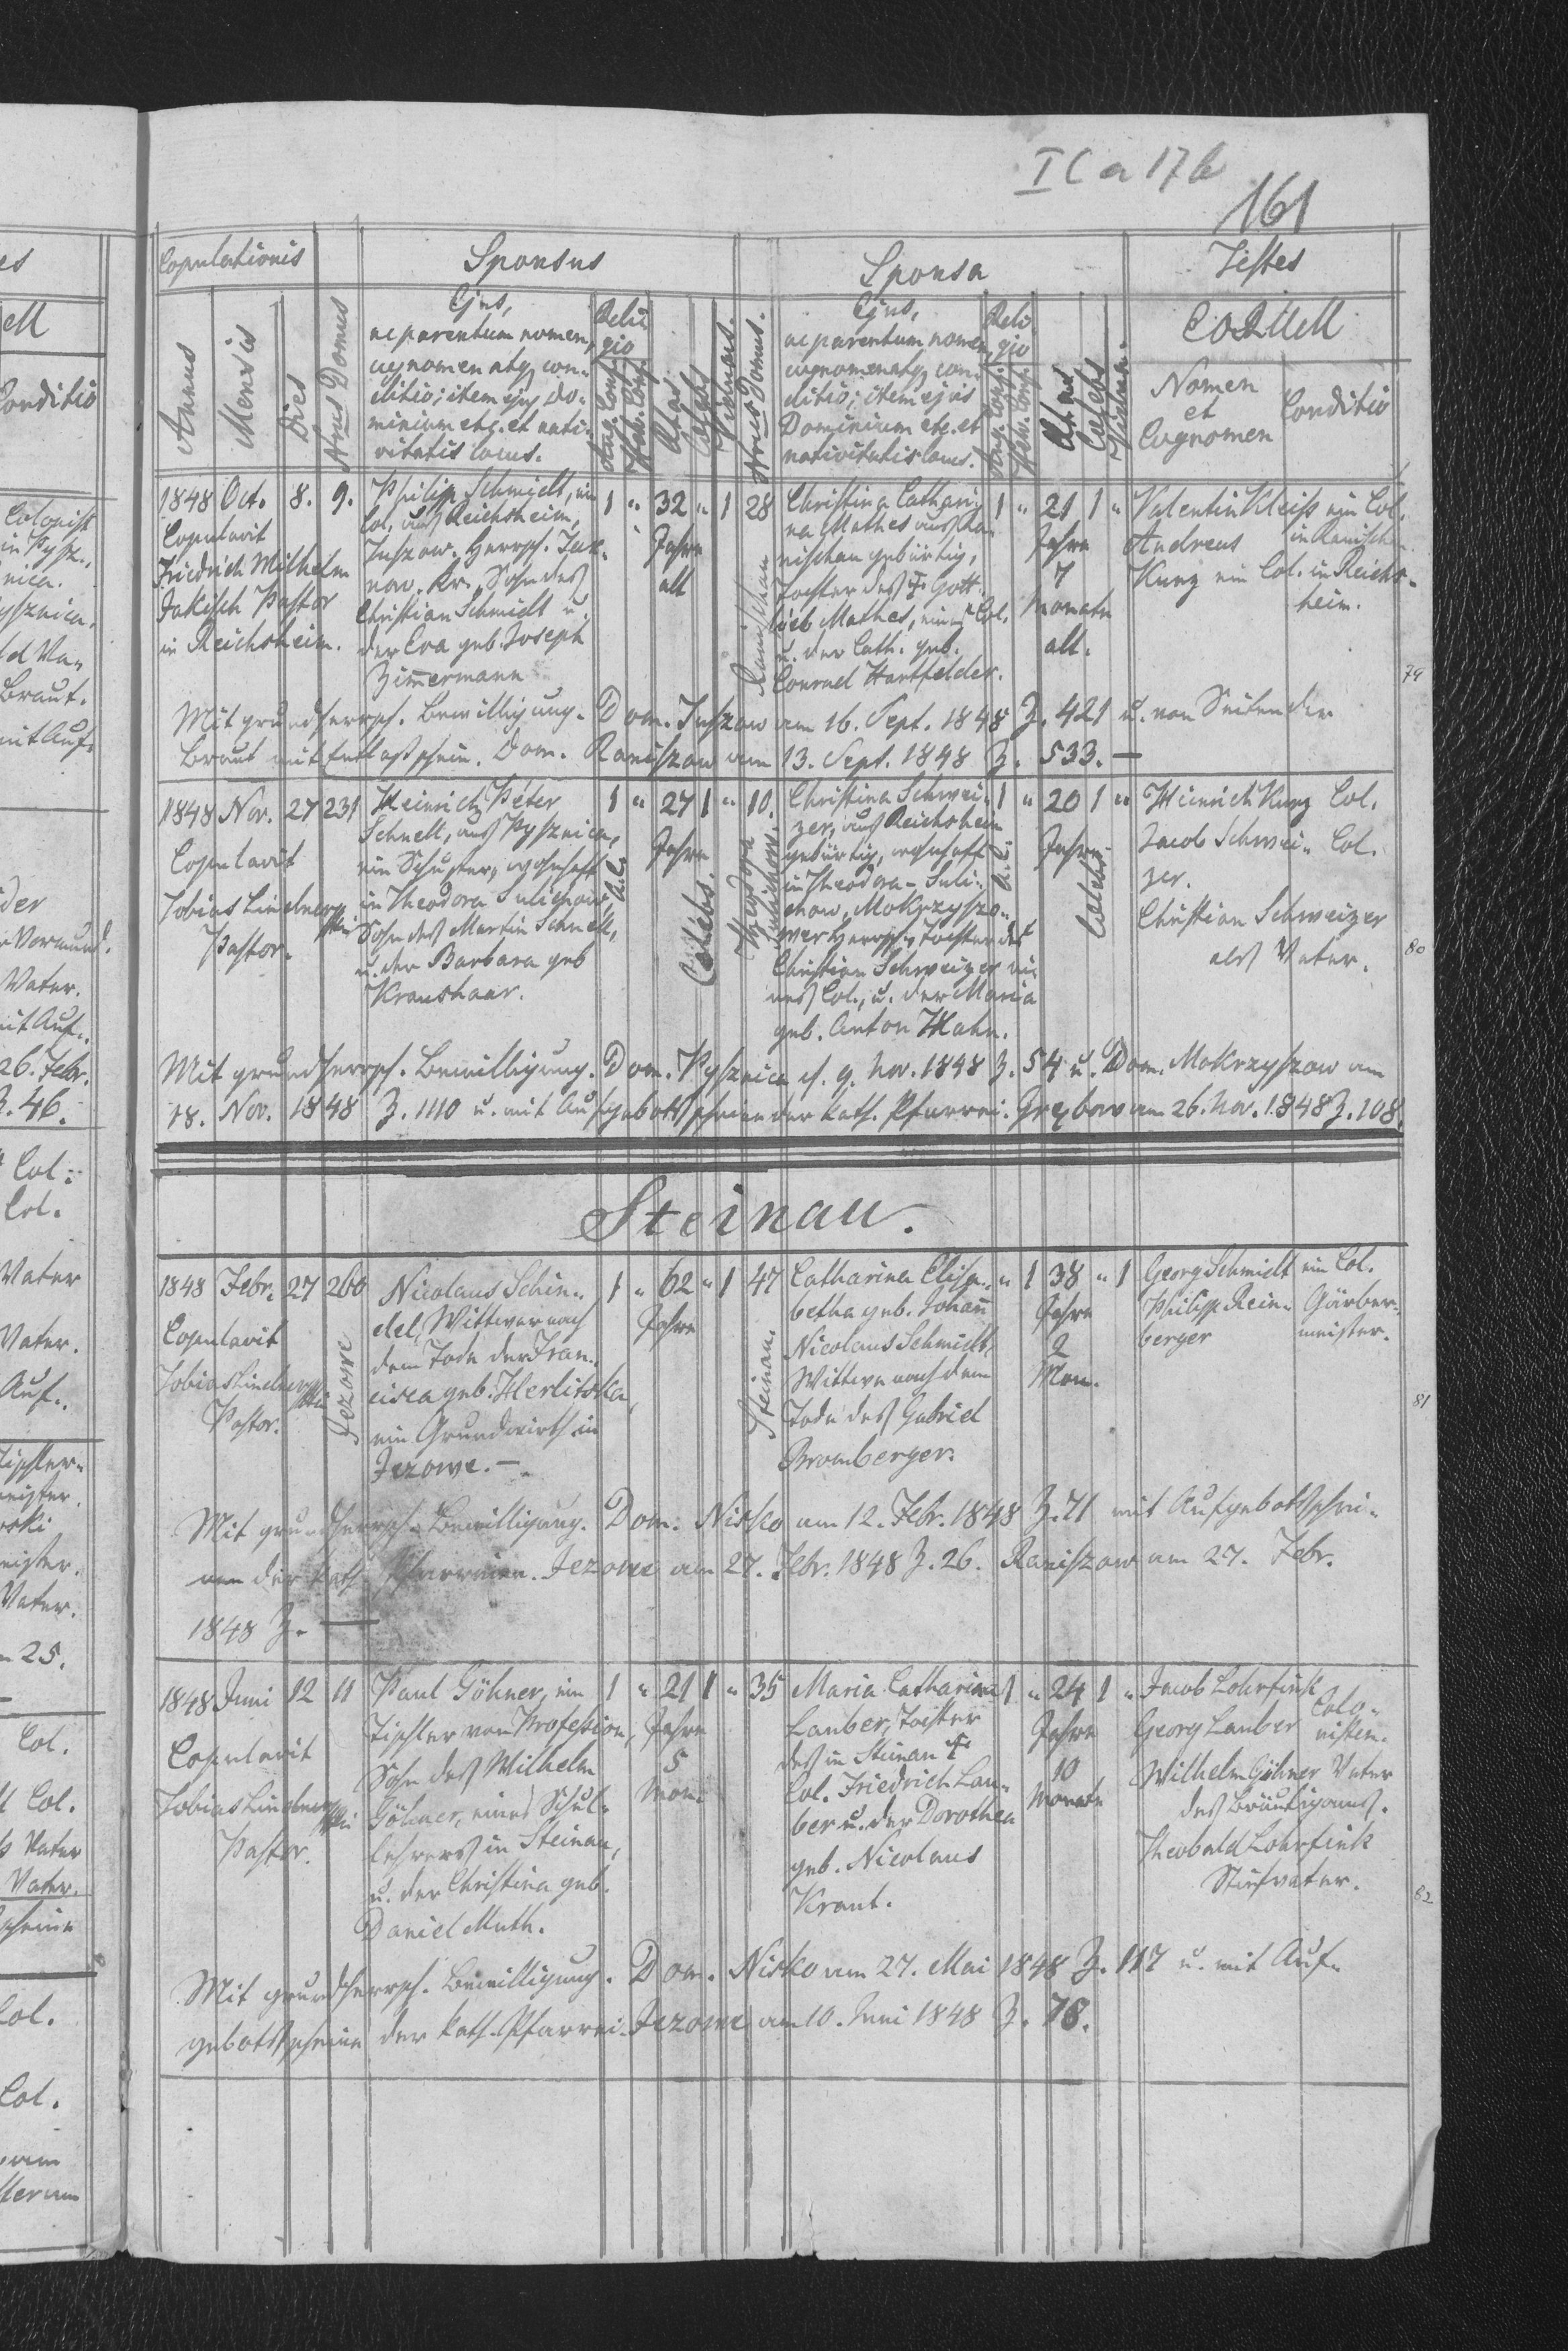 I C a 17 b
161
Copulationis
Sponsus
Sponsa
Testes
Annus
Mensis
Dies
Nrus Domus
Ejus,
ac parentum nomen,
cognomen atq. con-
ditio; item ejus Do-
minium etc. et nati-
vitatis locus.
Religio
Aug. Conf.
Helv. Conf.
Aetas
Caelebs
Viduus
Nrus Domus.
Ejus,
ac parentum nomen,
cognomen atq. con-
ditio; item ejus
Dominium etc. et
nativitatis locus.
Religio
Aug. Conf.
Helv. Conf.
Aetas
Caelebs
Vidua
Nomen
et
Cognomen
Conditio
1848 Oct. 8. 9.
Copulavit
Friedrich Wilhelm
Jakisch Pastor
in Reichsheim.
Philipp Schmidt, ein
Col. aus Reichsheim,
Tuszow. Herrsch. Tar-
now. Kr., Sohn des
Christian Schmidt u.
der Eva geb. Joseph
Zimmermann
1 " 32 " 1 28
Jahre
alt
Ranischau
Christina Cathari-
na Mathes aus Ra-
nischau gebürtig,
Tochter des † Gott-
lieb Mathes, eines Col.
u. der Cath. geb.
Conrad Hartfelder.
1 " 21 1 "
Jahre
7
Monate
alt.
Valentin Kleiss ein Col.
in Ranischau
Andreas
Kunz ein Col. in Reichs-
heim.
79
Mit grundherrsch. Bewilligung. Dom. Tuszow am 16. Sept. 1848 Z. 421 u. von Seiten der
Braut mit Entlaßschein. Dom. Raniszow am 13. Sept. 1848 Z. 533. —
1848 Nov. 27 231
Copulavit
Tobias Lindner
Pastor.
Heinrich Peter
Schnell, aus Pysznica,
ein Schuster, wohnhaft
in Theodora Sulichow,
Sohn des Martin Schnell,
u. der Barbara geb
Kraushaar.
1 " 27 1 " 10.
A. C.
Jahre
Caelebs.
Christina Schwei-
zer, aus Reichsheim
gebürtig, wohnhaft
in Theodora-Suli-
chow, Mokrzyszo-
wer Herrsch., Tochter des
Christian Schweizer ei-
nes Col., u. der Maria
geb. Anton Hahn.
1 " 20 1 "
A. C.
Jahre
Caelebs
Heinrich Kunz Col.
Jacob Schwei- Col.
zer.
Christian Schweizer
als Vater.
80
Mit grundherrsch. Bewilligung. Dom. Pysznica d. 9. Nov. 1848 Z. 54 u. Dom. Mokrzyszow am
18. Nov. 1848 Z. 1110 u. mit Aufgebottscheine der kath. Pfarrei. Grębow am 26. Nov. 1848 Z. 108.
Steinau.
1848 Febr. 27 260
Copulavit
Tobias Lindner
Pastor.
Jezowe
Nicolaus Schin-
del, Wittwer nach
dem Tode der Fran-
cisca geb. Herlitska,
ein Grundwirth in
Jezowe. —
1 " 62 " 1 47
Jahre
Steinau.
Catharina Elisa-
betha geb. Johann
Nicolaus Schmidt,
Wittwe nach dem
Tode des Gabriel
Bromberger.
" 1 38 " 1
Jahre
2
Mon.
Georg Schmidt ein Col.
Philipp Rein- Gärber-
berger meister.
81
Mit grundherrsch. Bewilligung. Dom. Nisko am 12. Febr. 1848 Z. 71 mit Aufgebottschei-
nen der kath. Pfarreien. Jezowe am 27. Febr. 1848 Z. 26. Raniszow am 27. Febr.
1848 Z. —
1848 Juni 12 11
Copulavit
Tobias Lindner
Pastor.
Paul Göhner, ein
Tischler von Profession,
Sohn des Wilhelm
Göhner, eines Schul-
lehrers in Steinau,
u. der Christina geb.
Daniel Muth.
1 " 21 1 " 35
Jahre
5
Mon.
Maria Catharina
Lauber, Tochter
des in Steinau †
Col. Friedrich Lau-
ber u. der Dorothea
geb. Nicolaus
Kraut.
1 " 24 1 "
Jahre
10
Monate
Jacob Lohrfink
Georg Lauber Colo-
nisten.
Wilhelm Göhner Vater
des Bräutigams.
Theobald Lohrfink
Stiefvater.
82
Mit grundherrsch. Bewilligung. Dom. Nisko am 27. Mai 1848 Z. 117 u. mit Auf-
gebottscheine der kath. Pfarrei. Jezowe am 10. Juni 1848 Z. 78.